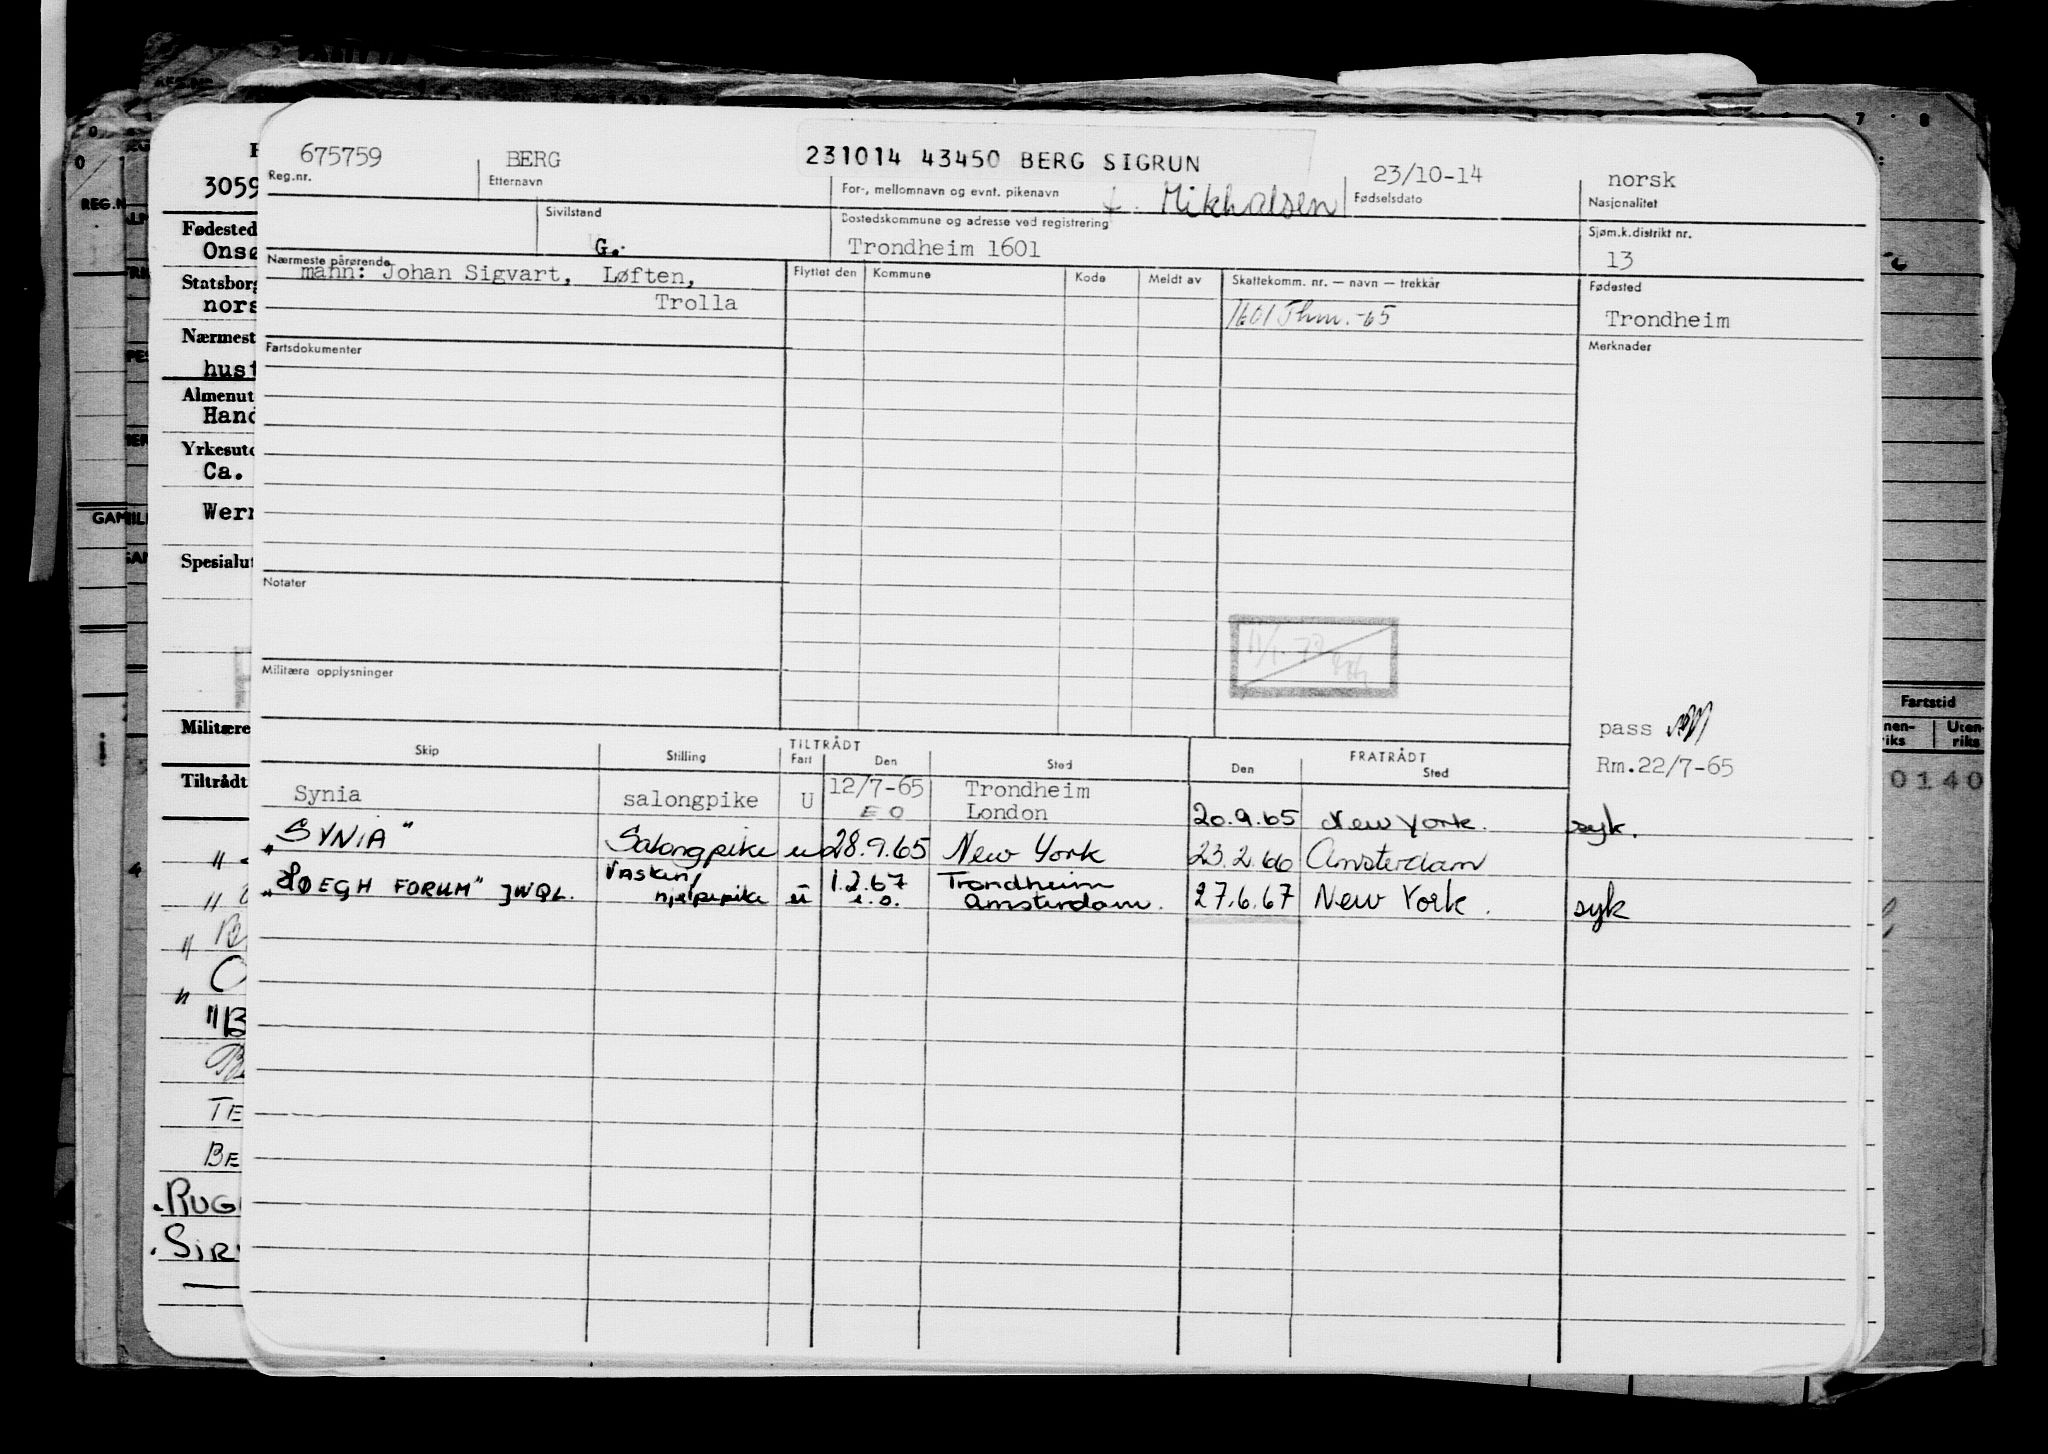 675759 BERG 231014 43450 BERG SIGRUN 23/10-14 norsk
Reg.nr. Etternavn For-, mellomnavn og evnt. pikenavn f. Mikhalsen Fødselsdato Nasjonalitet
Sivilstand Bostedskommune og adresse ved registrering Sjøm.k.distrikt nr.
G. Trondheim 1601 13
Nærmeste pårørende Flyttet den Kommune Kode Meldt av Skattekomm. nr. — navn — trekkår Fødested
mann: Johan Sigvart, Løften,
Trolla 1601 Thm.-65 Trondheim
Fartsdokumenter Merknader
Notater
Militære opplysninger
pass
Rm.22/7-65
TILTRÅDT FRATRÅDT
Skip Stilling Fart Den Sted Den Sted
Synia salongpike U 12/7-65 Trondheim
EO London 20.9.65 New York. syk.
"SYNIA" Salongpike u 28.9.65 New York 23.2.66 Amsterdam
"HØEGH FORUM" JWQL. Vaskeri/ 1.2.67 Trondheim
hjelpepike u e.o. Amsterdam. 27.6.67 New York. syk
3059
Fødested
Onsø
Statsborg
nors
Nærmest
hust
Almenut
Hand
Yrkesutd
Ca.
Wern
Spesialut
Militære
Tiltrådt
TE
BE
RUG
SIR
REG.N
GAMIL
7 8
Fartstid
nen-riks Uten-riks
0140